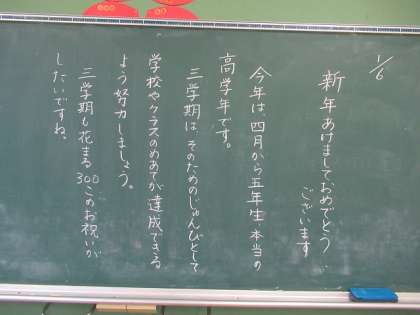 1/6
新年あけましておめでとう
ございます
今年は、四月から五年生 本当の
高学年です。
三学期は、そのためのじゅんびとして
学校やクラスのめあてが達成できる
よう努力しましょう。
三学期も花まる300このお祝いが
したいですね。